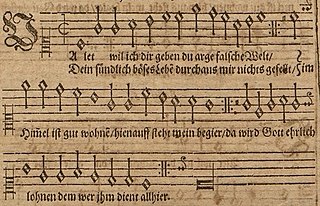 Valet wil ich dir geben du arge falsche Welt/
Dein sündlich böses Lebē durchaus mir nichts gefellt/ Im
Him̃el ist gut wohnē/ hienauff steht mein begier/ da wird Gott ehrlich
lohnen dem wer ihm dient allhier.